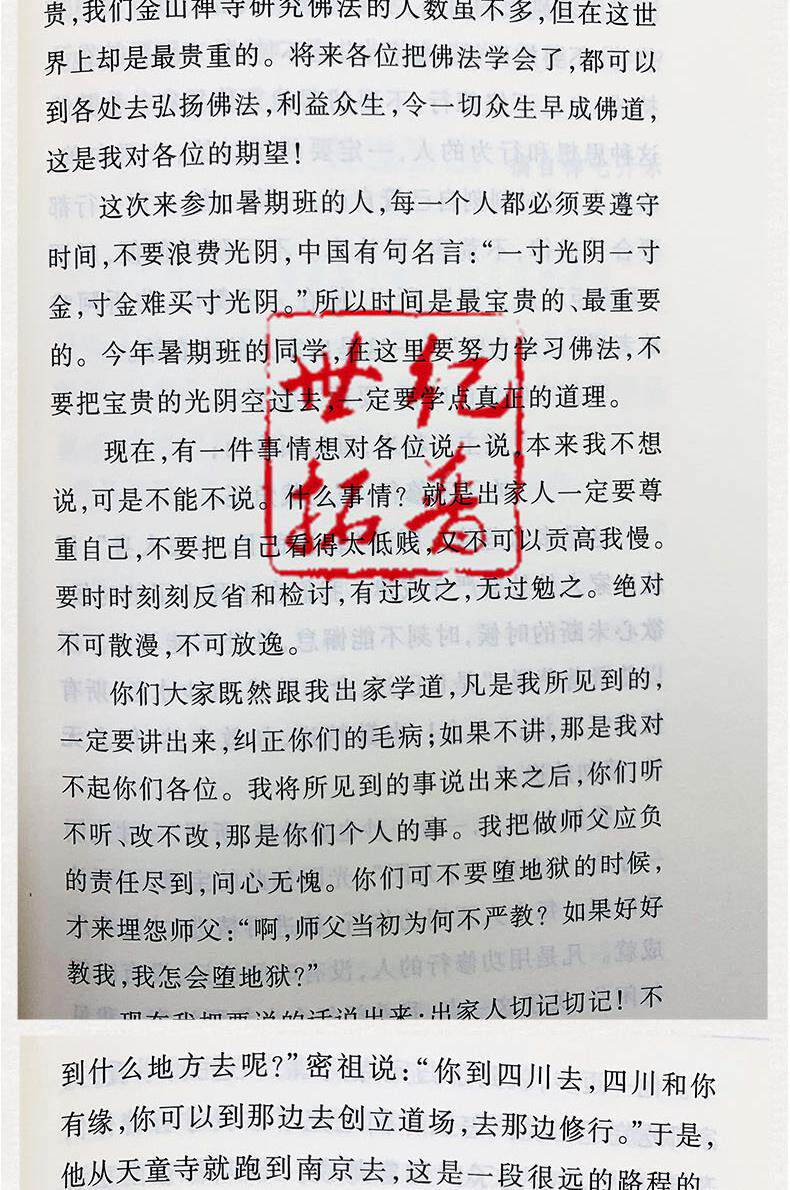 贵,我们金山禅寺研究佛法的人数虽不多,但在这世
界上却是最贵重的。将来各位把佛法学会了,都可以
到各处去弘扬佛法,利益众生,令一切众生早成佛道,
这是我对各位的期望!
这次来参加暑期班的人,每一个人都必须要遵守
时间,不要浪费光阴,中国有句名言:“一寸光阴一寸
金,寸金难买寸光阴。”所以时间是最宝贵的、最重要
的。今年暑期班的同学,在这里要努力学习佛法,不
要把宝贵的光阴空过去,一定要学点真正的道理。
现在,有一件事情想对各位说一说,本来我不想
说,可是不能不说。什么事情?就是出家人一定要尊
重自己,不要把自己看得太低贱,又不可以贡高我慢。
要时时刻刻反省和检讨,有过改之,无过勉之。绝对
不可散漫,不可放逸。
你们大家既然跟我出家学道,凡是我所见到的,
一定要讲出来,纠正你们的毛病;如果不讲,那是我对
不起你们各位。我将所见到的事说出来之后,你们听
不听、改不改,那是你们个人的事。我把做师父应负
的责任尽到,问心无愧。你们可不要堕地狱的时候,
才来埋怨师父:“啊,师父当初为何不严教?如果好好
教我,我怎会堕地狱?”
现在我把要说的话说出来:出家人切记切记!不
世纪
拓普
到什么地方去呢?”密祖说:“你到四川去,四川和你
有缘,你可以到那边去创立道场,去那边修行。”于是,
他从天童寺就跑到南京去,这是一段很远的路程的